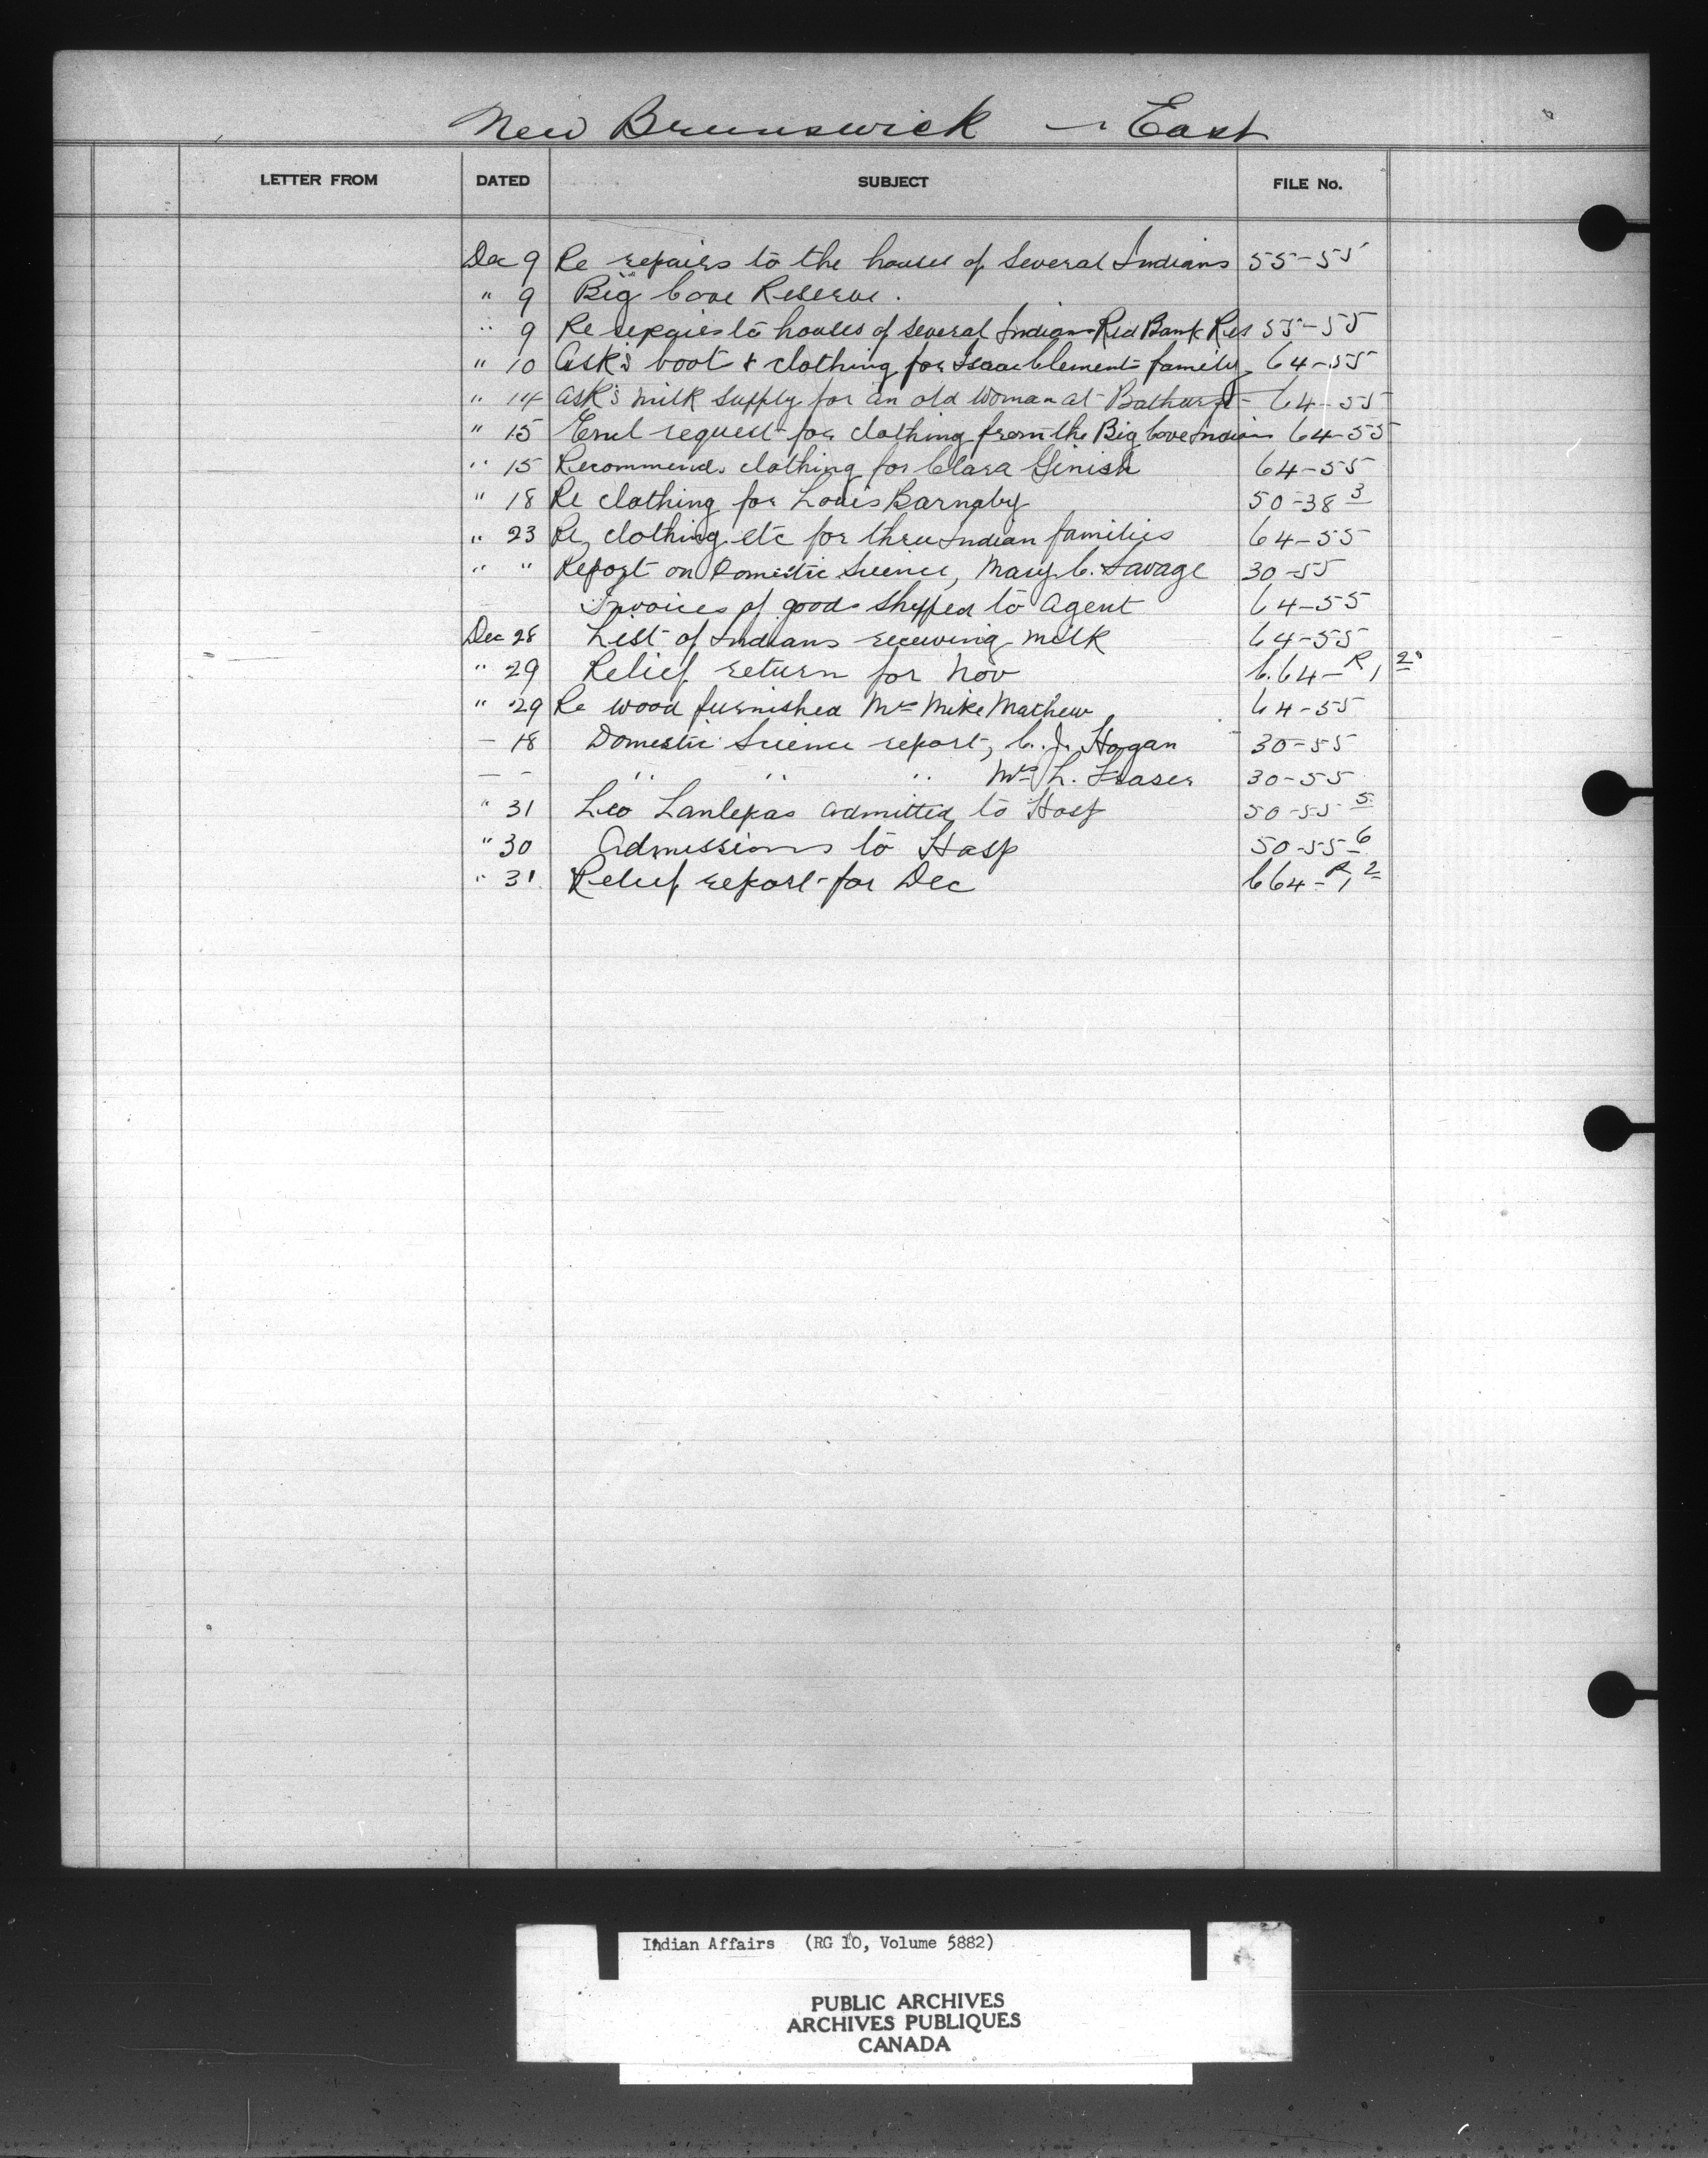 New Brunswick - East
LETTER FROM DATED SUBJECT FILE No.
Dec 9 Re repairs to the houses of Several Indians 55-55
" 9 Big Cove Reserve.
" 9 Re repairs to houses of Several Indians Red Bank Res 55-55
" 10 Ask's boot & clothing for Isaac Clement family 64-55
" 14 Ask's milk supply for an old woman at Bathurst 64-55
" 15 Encl request for clothing from the Big Cove Indians 64-55
" 15 Recommends clothing for Clara Ginish 64-55
" 18 Re clothing for Louis Barnaby 50-38 3
" 23 Re clothing etc for three Indian families 64-55
" " Report on Domestic Science, Mary C. Savage 30-55
Invoices of goods shipped to Agent 64-55
Dec 28 List of Indians receiving milk 64-55
" 29 Relief return for Nov C.64-R, 2
" 29 Re wood furnished Mrs Mike Mathew 64-55
- 18 Domestic Science report, C. J. Hogan 30-55
- - " " " Mrs L. Fraser 30-55
" 31 Leo admitted to Hosp 50-55 5
" 30 Admissions to Hosp 50-55-6
" 31 Relief report for Dec C64-R, 2
Indian Affairs (RG 10, Volume 5882)
PUBLIC ARCHIVES
ARCHIVES PUBLIQUES
CANADA